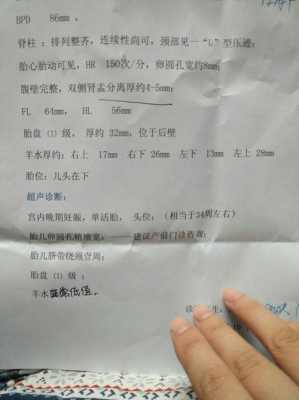 BPD 86mm 。
脊柱:排列整齐,连续性尚可,颈部见一“U”型压迹;
胎心胎动可见,HR 150次/分,卵圆孔宽约8mm;
腹壁完整,双侧肾盂分离厚约4-5mm;
FL 64mm, HL 56mm
胎盘(I)级, 厚约 32mm,位于后壁
羊水厚约:右上 17mm 右下 26mm 左下 13mm 左上 28mm
胎位:儿头在下
超声诊断:
宫内晚期妊娠,单活胎, 头位;(相当于34周左右)
胎儿卵圆孔稍增宽; ——建议产前门诊咨询;
胎儿脐带绕颈壹周;
胎盘(I)级;
羊水正常低值。